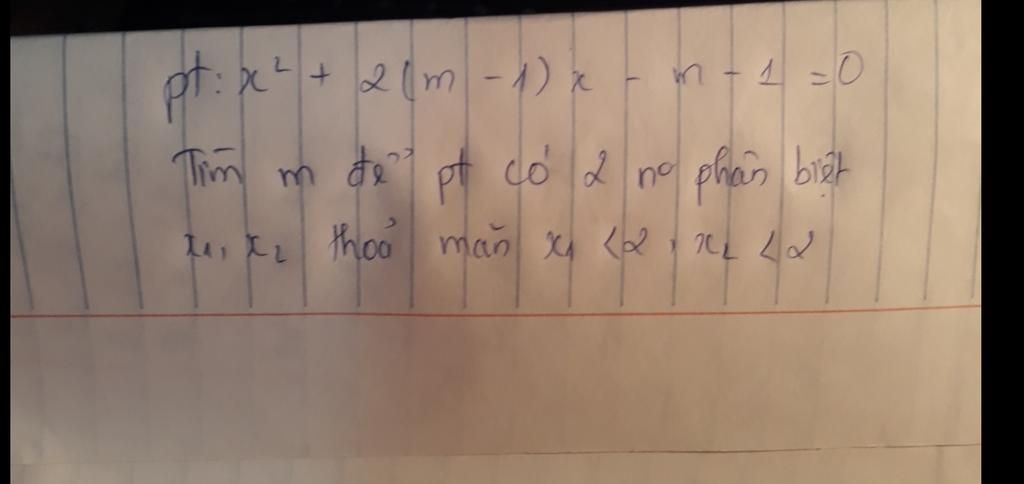 pt: x² + 2(m - 1)x - m - 1 = 0
Tìm m để pt có 2 no phân biệt
x₁, x₂ thoả mãn x₁ < 2, x₂ < 2